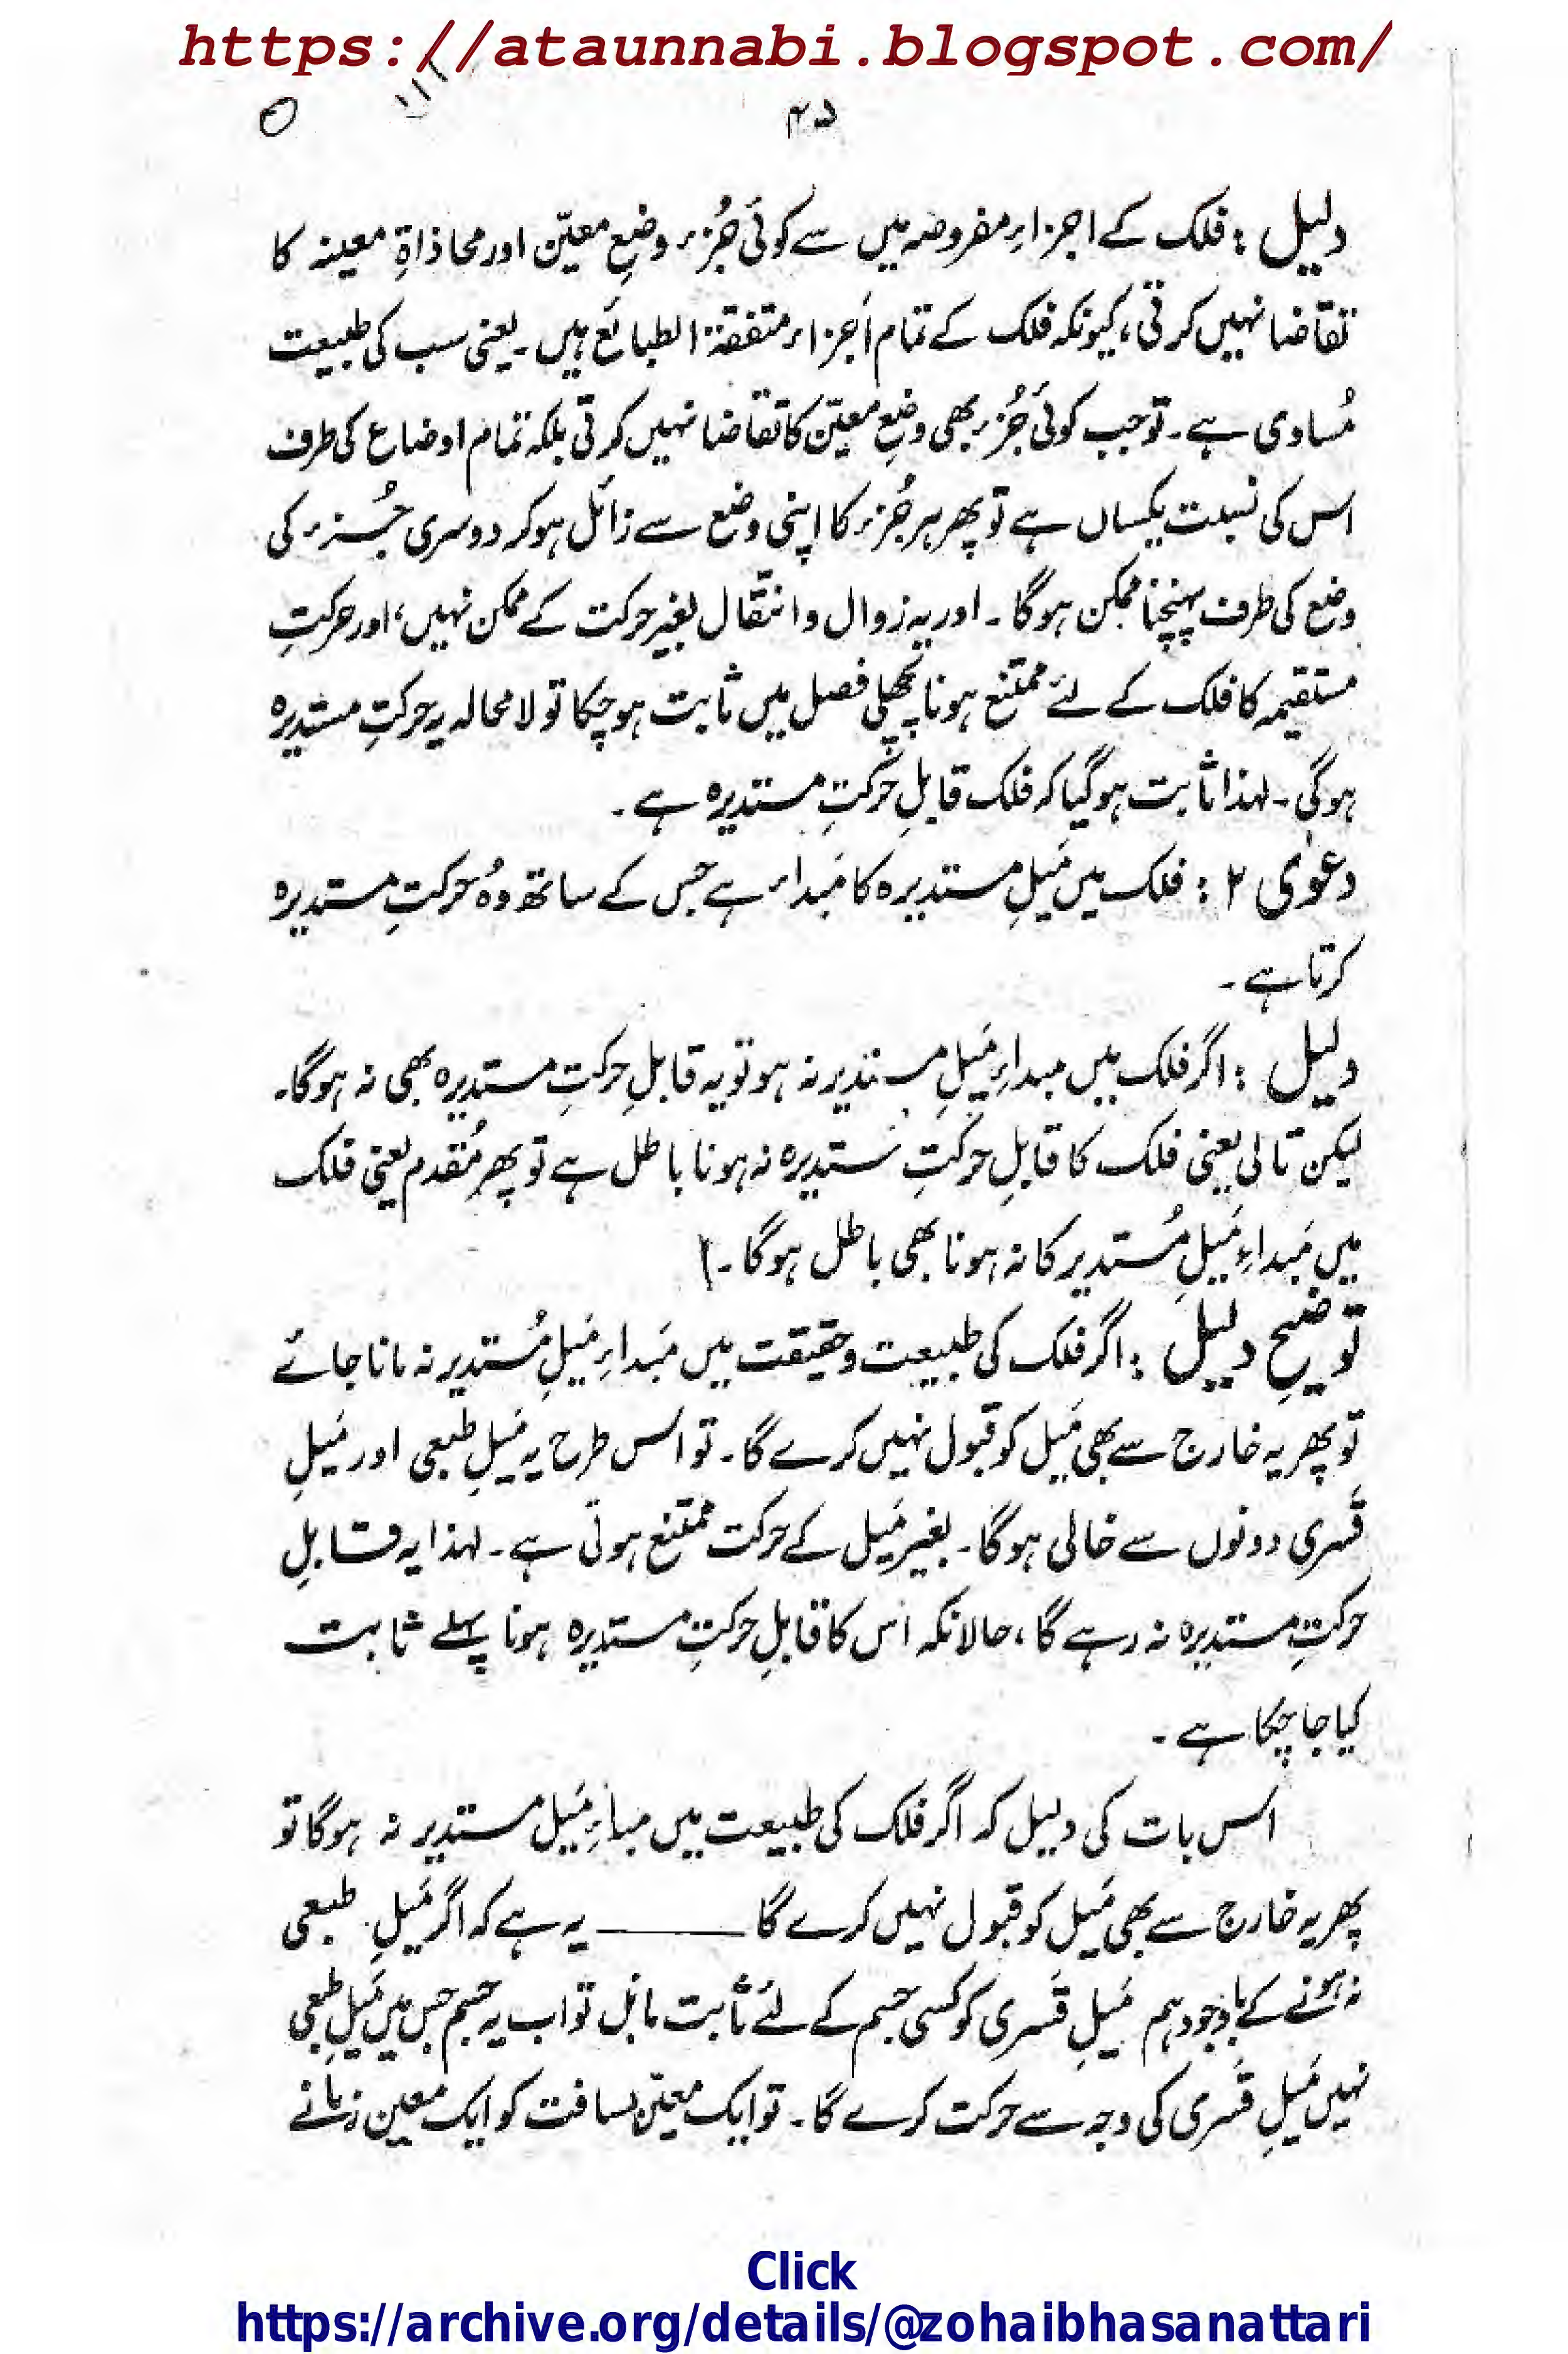 https://ataunnabi.blogspot.com/
۴۵
دلیل : فلک کے اجزاءِ مفروضہ میں سے کوئی جُزء وضعِ معیّن اور محاذاۃِ معینہ کا
تقاضا نہیں کرتی، کیونکہ فلک کے تمام اَجزاء متفقۃ الطبائع ہیں۔ یعنی سب کی طبیعت
مُساوی ہے۔ تو جب کوئی جُزء بھی وضعِ معیّن کا تقاضا نہیں کرتی بلکہ تمام اوضاع کی طرف
اس کی نسبت یکساں ہے تو پھر ہر جُزء کا اپنی وضع سے زائل ہو کر دوسری جُزء کی
وضع کی طرف پہنچنا ممکن ہوگا۔ اور یہ زوال و انتقال بغیر حرکت کے ممکن نہیں، اور حرکتِ
مستقیمہ کا فلک کے لئے ممتنع ہونا پچھلی فصل میں ثابت ہو چکا تو لامحالہ یہ حرکتِ مستدیرہ
ہوگی۔ لہذا ثابت ہو گیا کہ فلک قابلِ حرکتِ مستدیرہ ہے۔
دعوٰی ۲ : فلک میں مَیلِ مستدیرہ کا مَبداء ہے جس کے ساتھ وہُ حرکتِ مستدیرہ
کرتا ہے۔
دلیل : اگر فلک میں مبداءِ مَیلِ مستدیر نہ ہو تو یہ قابلِ حرکتِ مستدیرہ بھی نہ ہوگا۔
لیکن تالی یعنی فلک کا قابلِ حرکتِ مستدیرہ نہ ہونا باطل ہے تو پھر مُقدم یعنی فلک
میں مَبداءِ مَیلِ مُستدیر کا نہ ہونا بھی باطل ہوگا۔
توضیحِ دلیل : اگر فلک کی طبیعت و حقیقت میں مَبداءِ مَیلِ مُستدیر نہ مانا جائے
تو پھر یہ خارج سے بھی مَیل کو قبول نہیں کرے گا۔ تو اس طرح یہ مَیلِ طبعی اور مَیلِ
قَسری دونوں سے خالی ہوگا۔ بغیر مَیل کے حرکت ممتنع ہوتی ہے۔ لہذا یہ قابلِ
حرکتِ مستدیرہ نہ رہے گا، حالانکہ اس کا قابلِ حرکتِ مستدیرہ ہونا پہلے ثابت
کیا جا چکا ہے۔
اس بات کی دلیل کہ اگر فلک کی طبیعت میں مبداءِ مَیل مستدیر نہ ہوگا تو
پھر یہ خارج سے بھی مَیل کو قبول نہیں کرے گا ــــــــ یہ ہے کہ اگر مَیلِ طبعی
نہ ہونے کے باوجود ہم مَیلِ قَسری کو کسی جسم کے لئے ثابت مانیں تو اب یہ جسم جس میں مَیلِ طبعی
نہیں مَیلِ قَسری کی وجہ سے حرکت کرے گا۔ تو ایک معیّن مسافت کو ایک معین زمانے
Click
https://archive.org/details/@zohaibhasanattari